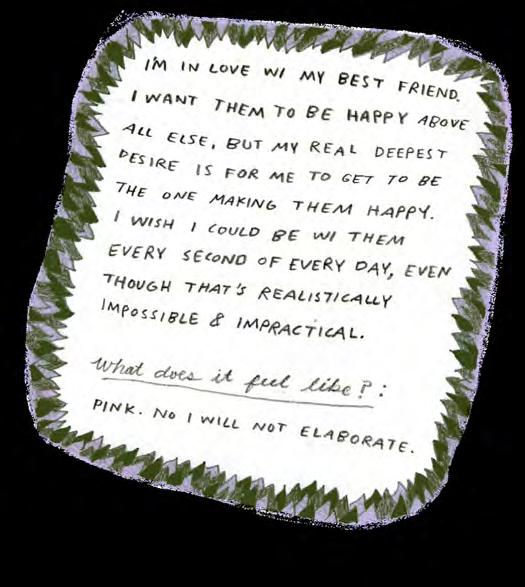 I'M IN LOVE W/ MY BEST FRIEND.
I WANT THEM TO BE HAPPY ABOVE
ALL ELSE, BUT MY REAL DEEPEST
DESIRE IS FOR ME TO GET TO BE
THE ONE MAKING THEM HAPPY.
I WISH I COULD BE W/ THEM
EVERY SECOND OF EVERY DAY, EVEN
THOUGH THAT'S REALISTICALLY
IMPOSSIBLE & IMPRACTICAL.
What does it feel like?:
PINK. NO I WILL NOT ELABORATE.